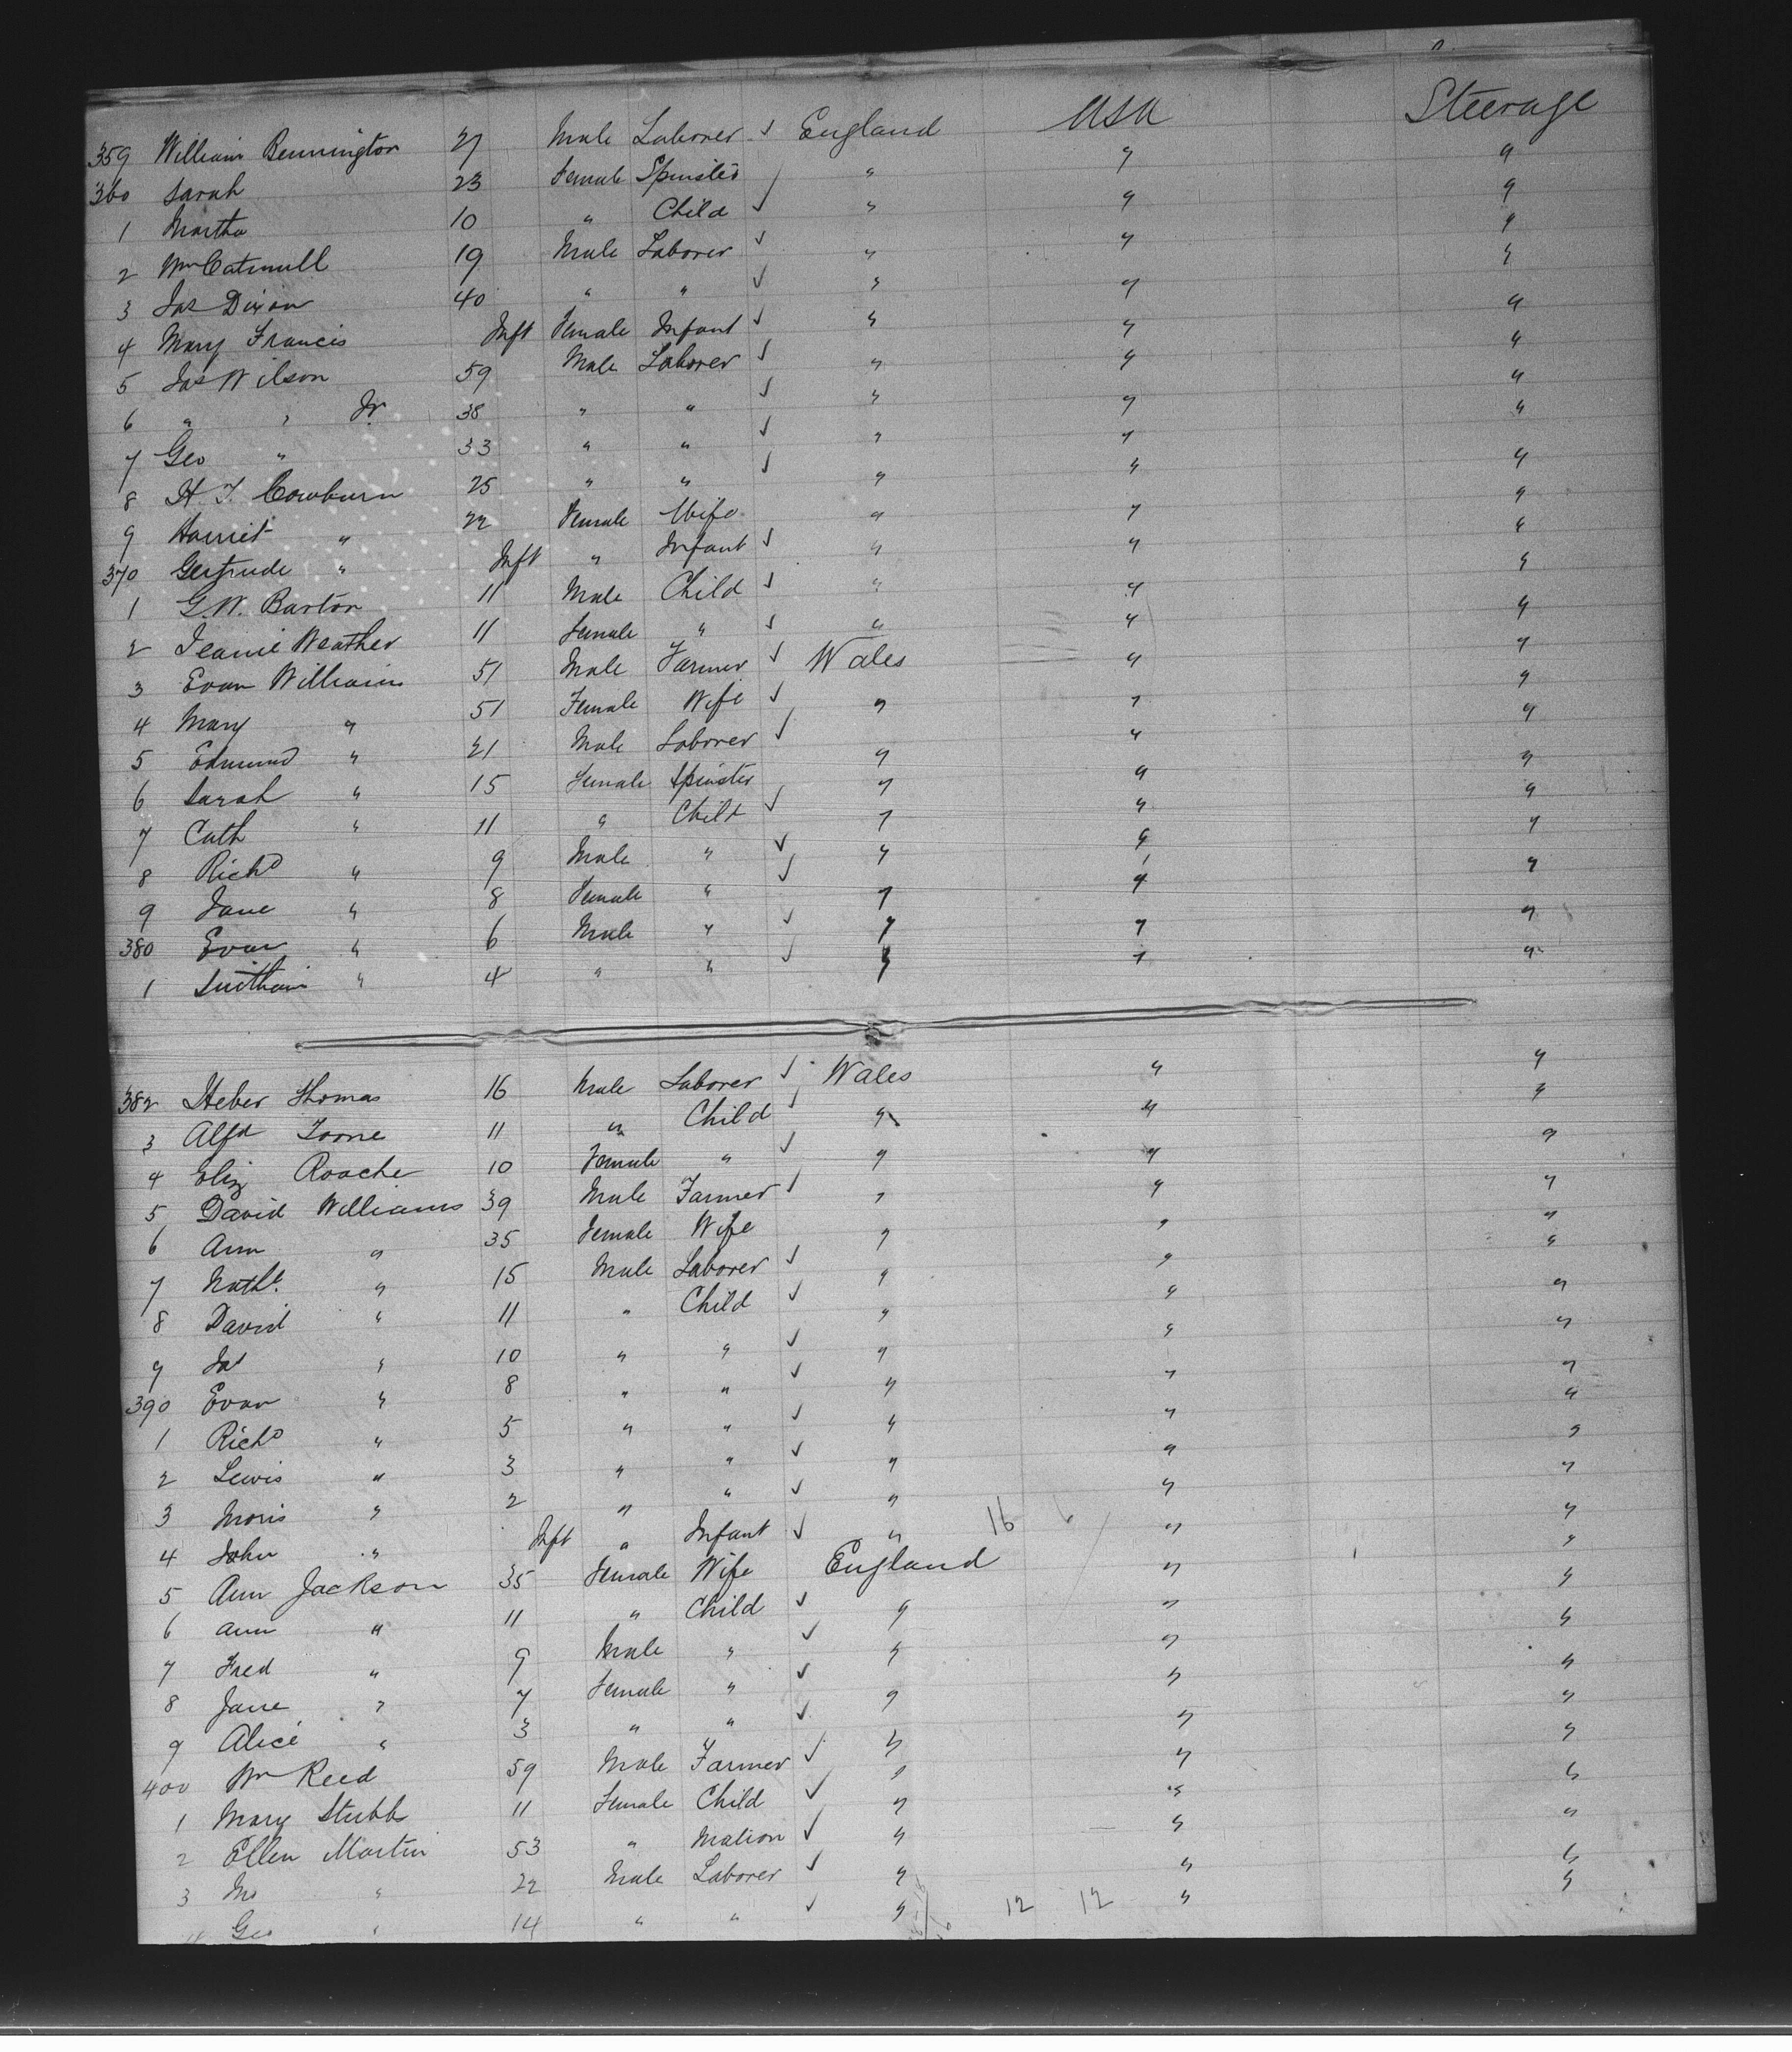 359 William Bennington 27 Male Laborer ✓ England USA Steerage
360 Sarah 23 Female Spinster ✓ " " "
1 Martha 10 " Child ✓ " " "
2 Wm Catmull 19 Male Laborer ✓ " " "
3 Jas Dixon 40 " " ✓ " " "
4 Mary Francis Inft Female Infant ✓ " " "
5 Jas Wilson 59 Male Laborer ✓ " " "
6 " " Jr 38 " " ✓ " " "
7 Geo " 33 " " ✓ " " "
8 H. T. Cowburn 25 " " ✓ " " "
9 Harriet " 22 Female Wife " " "
370 Gertrude " Inft " Infant ✓ " " "
1 G.W. Barton 11 Male Child ✓ " " "
2 Jeanie Weather 11 Female " ✓ " " "
3 Evan Williams 51 Male Farmer ✓ Wales " "
4 Mary " 51 Female Wife ✓ " " "
5 Edmund " 21 Male Laborer ✓ " " "
6 Sarah " 15 Female Spinster " " "
7 Cath " 11 " Child ✓ " " "
8 Richd " 9 Male " ✓ " " "
9 Jane " 8 Female " ✓ " " "
380 Evan " 6 Male " ✓ " " "
1 " 4 " " ✓ " " "
382 Heber Thomas 16 Male Laborer ✓ Wales " "
3 Alfd Toone 11 " Child ✓ " " "
4 Eliz Roache 10 Female " ✓ " " "
5 David Williams 39 Male Farmer ✓ " " "
6 Ann " 35 Female Wife " " "
7 Nathl. " 15 Male Laborer ✓ " " "
8 David " 11 " Child ✓ " " "
9 Jas " 10 " " ✓ " " "
390 Evan " 8 " " ✓ " " "
1 Richd " 5 " " ✓ " " "
2 Lewis " 3 " " ✓ " " "
3 Moris " 2 " " ✓ " " "
4 John " Inft " Infant ✓ " 16 " "
5 Ann Jackson 35 Female Wife England " "
6 Ann " 11 " Child ✓ " " "
7 Fred " 9 Male " ✓ " " "
8 Jane " 7 Female " ✓ " " "
9 Alice " 3 " " ✓ " " "
400 Wm Reed 59 Male Farmer ✓ " " "
1 Mary Stubb 11 Female Child ✓ " " "
2 Ellen Martin 53 " Matron ✓ " " "
3 " 22 Male Laborer ✓ " " "
4 Geo " 14 " " ✓ " 12 12 " "